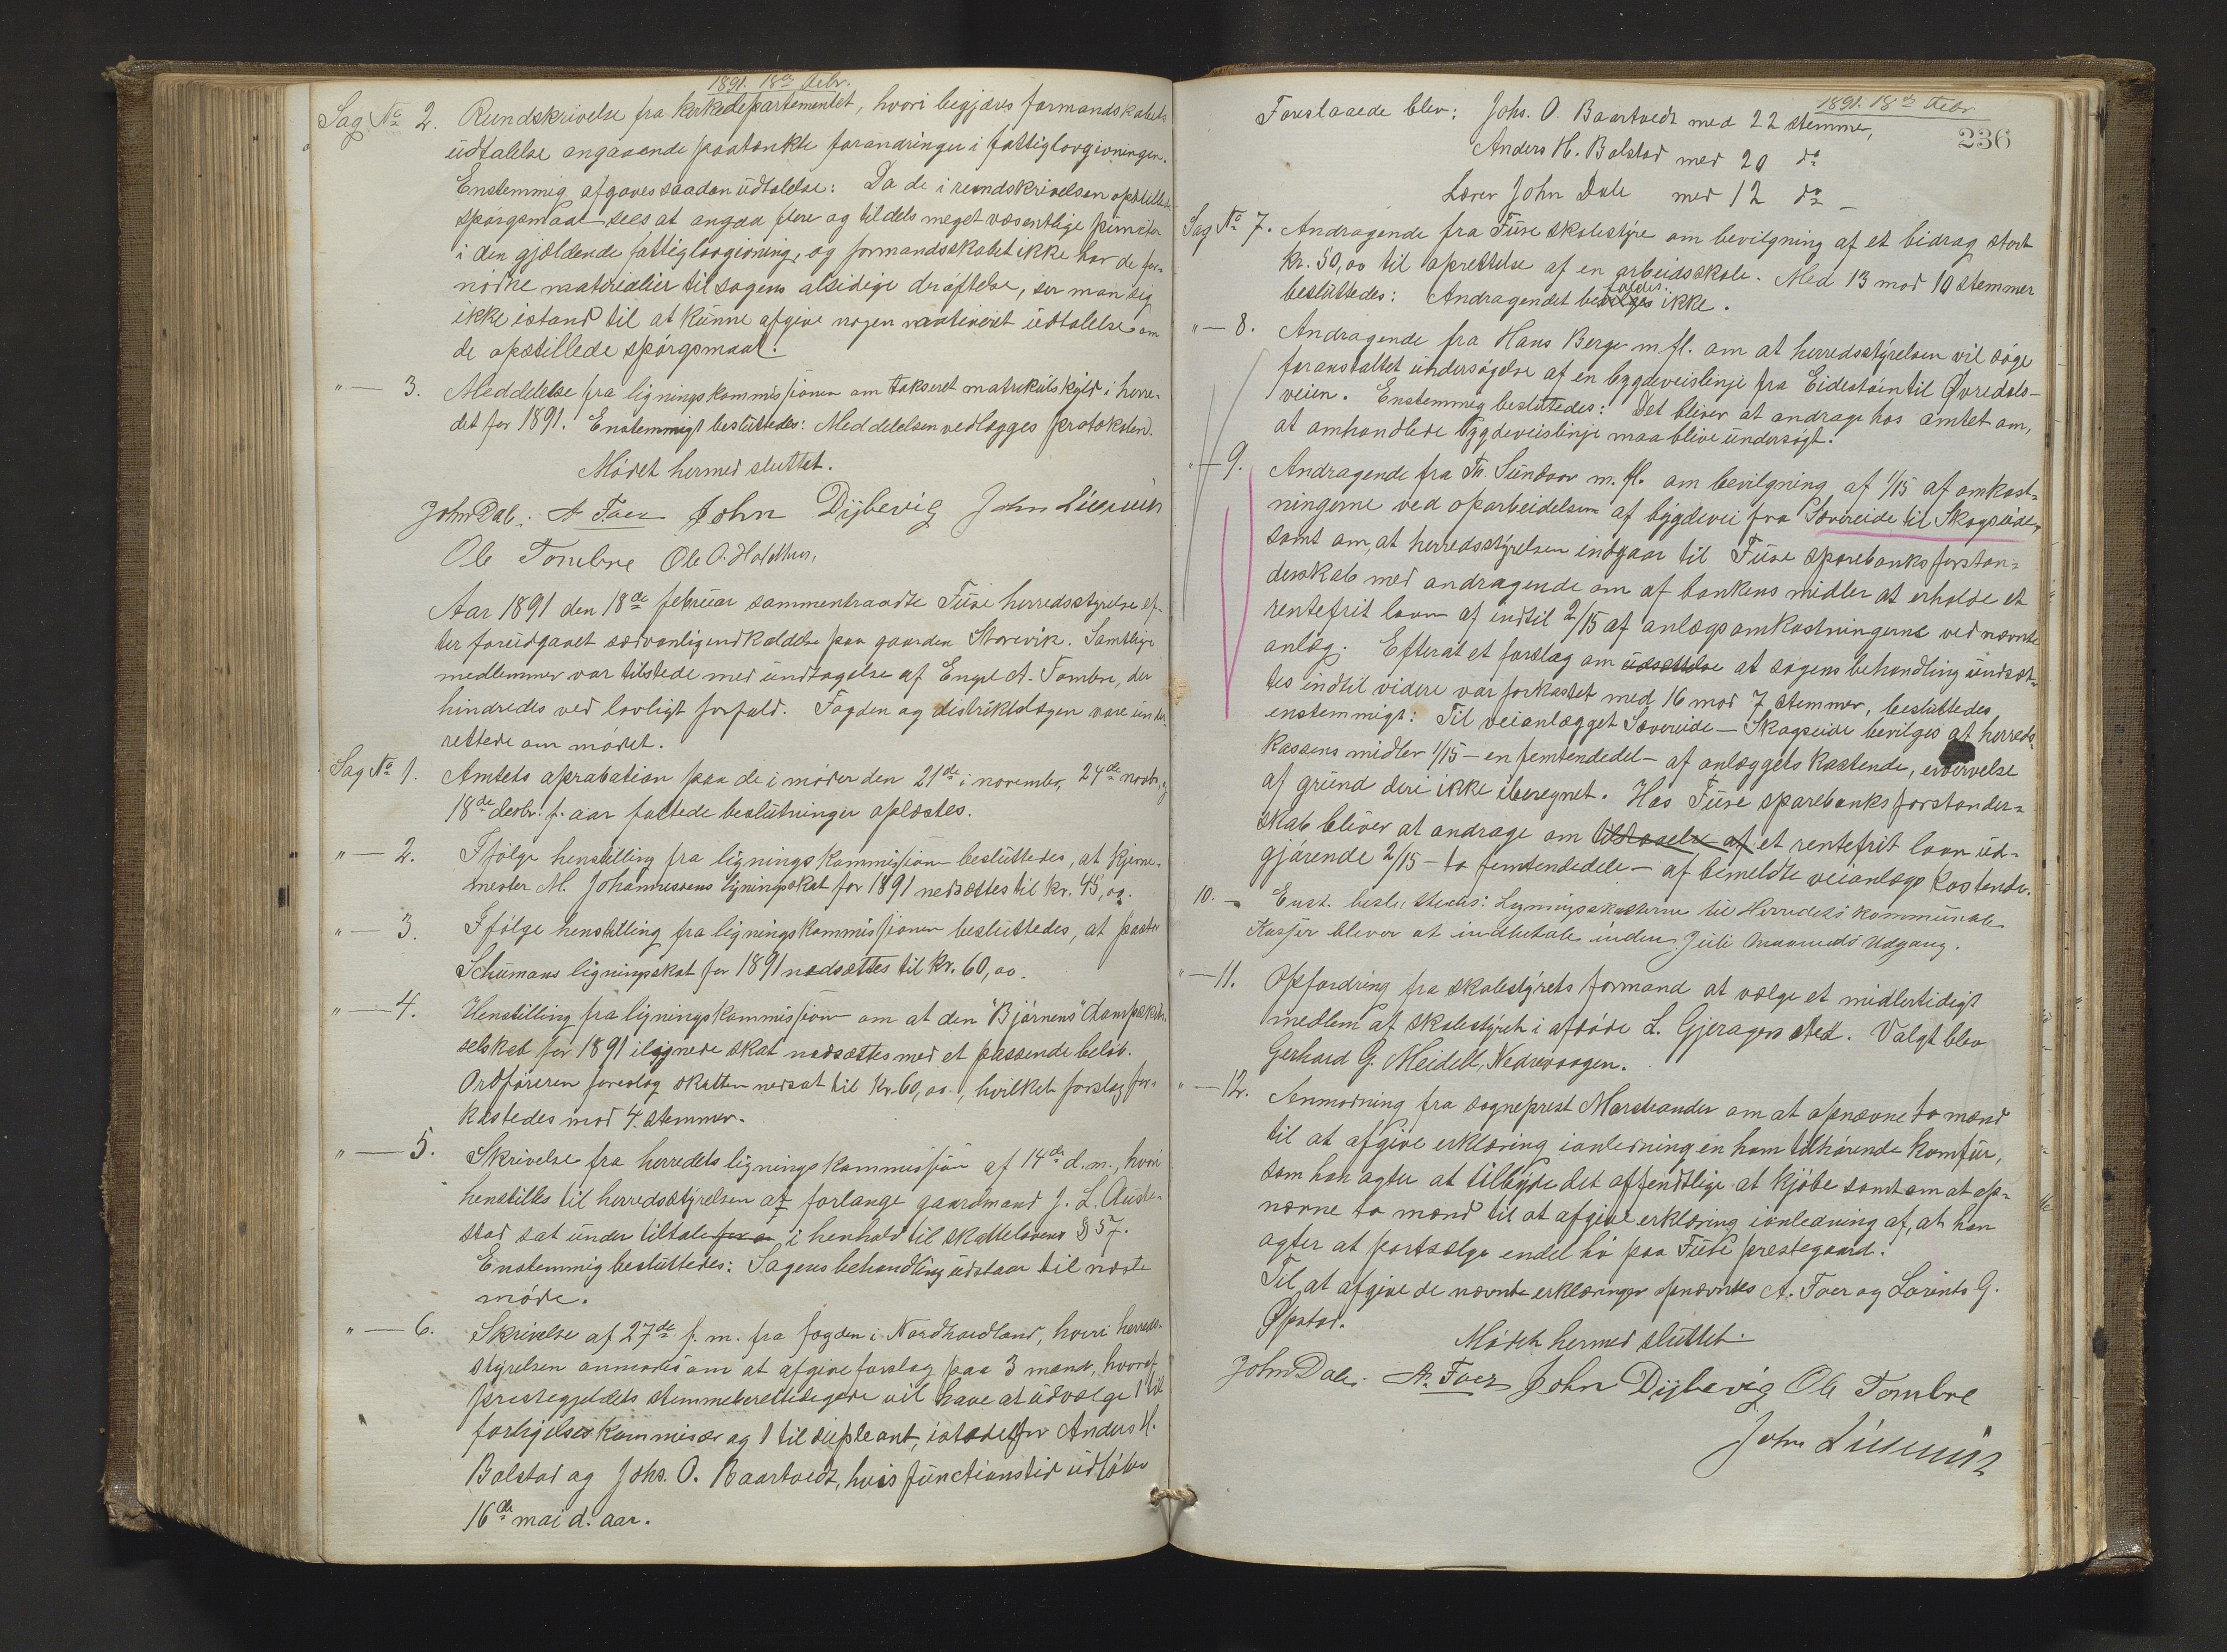 1891. 18de Febr.
Sag No 2. Rundskrivelse fra kirkedepartementet, hvori begjæres formandskabets
udtalelse angaaende paatænkte forandringer i fattiglovgivningen.
Enstemmig afgaves saadan udtalelse: Da de i rundskrivelsen opstillede
spørgsmaal sees at angaa flere og tildels meget væsentlige puncter
i den gjældende fattiglovgivning, og formandskabet ikke har de for-
nødne materialier til sagens alsidige drøftelse, ser man sig
ikke istand til at kunne afgive nogen motiveret udtalelse om
de opstillede spørgsmaal.
"— 3. Meddelelse fra ligningskommissionen om takseret matrikulskyld i herre-
det for 1891. Enstemmigt besluttedes: Meddelelsen vedlægges protokolen.
Mødet hermed sluttet.
John Dale. A. Foer John Dybevig John Lien
Ole Tombre Ole O. Holdhus.
Aar 1891 den 18de februar sammentraadte Fuse herredsstyrelse ef-
ter forudgaaet sædvanlig indkaldelse paa gaarden Storevik. Samtlige
medlemmer var tilstede med undtagelse af Engel A. Tombre, der
hindredes ved lovligt forfald. Fogden og distriktslægen vare under-
rettede om mødet.
Sag No 1. Amtets aprobation paa de i møder den 21de i november, 24de novbr. og
18de decbr. f. aar fattede beslutninger oplæstes.
"— 2. Ifølge henstilling fra ligningskommissionen besluttedes, at kjerne-
mester M. Johannessens ligningsskat for 1891 nedsættes til kr. 45,00.
"— 3. Ifølge henstilling fra ligningskommissionen besluttedes, at pastor
Schumans ligningsskat for 1891 nedsættes til kr. 60,00.
"— 4. Henstilling fra ligningskommission om at den "Bjørnens" dampskibs-
selskab for 1891 ilignede skat nedsættes med et passende beløb.
Ordføreren foreslog skatten nedsat til kr. 60,00, hvilket forslag for-
kastedes mod 4 stemmer.
"— 5. Skrivelse fra herredets ligningskommission af 14de d.m., hvori
henstilles til herredsstyrelsen at forlange gaardmand J. L. Auste-
stad sat under tiltale i henhold til skattelovens § 57.
Enstemmig besluttedes: Sagens behandling udstaar til næste
møde.
"— 6. Skrivelse af 27de f. m. fra fogden i Nordhordland, hvori herreds-
styrelsen anmodes om at afgive forslag paa 3 mænd, hvoraf
prestegjeldets stemmeberettigede vil have at udvælge 1 til
forligelseskommisær og 1 til supleant, istedetfor Anders H.
Bolstad og Johs. O. Baartvedt, hvis functionstid udløber
16de mai d. aar.
1891. 18de Febr.
236
Foreslaaede blev: Johs. O. Baartvedt med 22 stemmer,
Anders H. Bolstad med 20 do
Lærer John Dale med 12 do —
Sag No 7. Andragende fra Fuse skolestyre om bevilgning af et bidrag stort
kr. 50,00 til oprettelse af en arbeidsskole. Med 13 mod 10 stemmer
besluttedes: Andragendet bevilges ikke.
"— 8. Andragende fra Hans Berge m fl. om at herredsstyrelsen vil søge
foranstaltet undersøgelse af en bygdeveislinje fra Eidestøen til Øvredals-
veien. Enstemmig besluttedes: Det bliver at andrage hos amtet om,
at omhandlede bygdeveislinje maa blive undersøgt.
"— 9. Andragende fra Th. Sundvor m. fl. om bevilgning af 1/15 af omkost-
ningerne ved oparbeidelsen af bygdevei fra Sævereide til Skogseide,
samt om, at herredsstyrelsen indgaar til Fuse sparebanks forstan-
derskab med andragende om af bankens midler at erholde et
rentefrit laan af indtil 2/15 af anlægsomkostningerne ved nævnte
anlæg. Efterat et forslag om udsættelse at sagens behandling undsæt-
tes indtil videre var forkastet med 16 mod 7 stemmer, besluttedes
enstemmigt: Til veianlægget Sævereide — Skogseide bevilges af herreds-
kassens midler 1/15 – en femtendedel – af anlæggets kostende, erhvervelse
af grund deri ikke iberegnet. Hos Fuse sparebanks forstander-
skab bliver at andrage om tilstaaelse af et rentefrit laan ud-
gjørende 2/15 – to femtendedele – af bemeldte veianlægs kostende.
10. — Enst. besluttedes: Ligningsskatterne til Herredets kommunale
Kasser bliver at indbetale inden Juli Maaneds Udgang.
"— 11. Opfordring fra skolestyrets formand at vælge et midlertidigt
medlem af skolestyret i afdøde L. Gjeragers sted. Valgt blev
Gerhard G. Meidell, Nedrevaagen.
"— 12. Anmodning fra sogneprest Marstrander om at opnævne to mænd
til at afgive erklæring ianledning en ham tilhørende komfur,
som han agter at tilbyde det offendtlige at kjøbe samt om at op-
nævne to mænd til at afgive erklæring ianledning af, at han
agter at portsælge endel hø paa Fuse prestegaard.
Til at afgive de nævnte erklæringer opnævntes A. Foer og Lorents G.
Øpstad.
Mødet hermed sluttet.
John Dale. A. Foer John Dybevig Ole Tombre
John